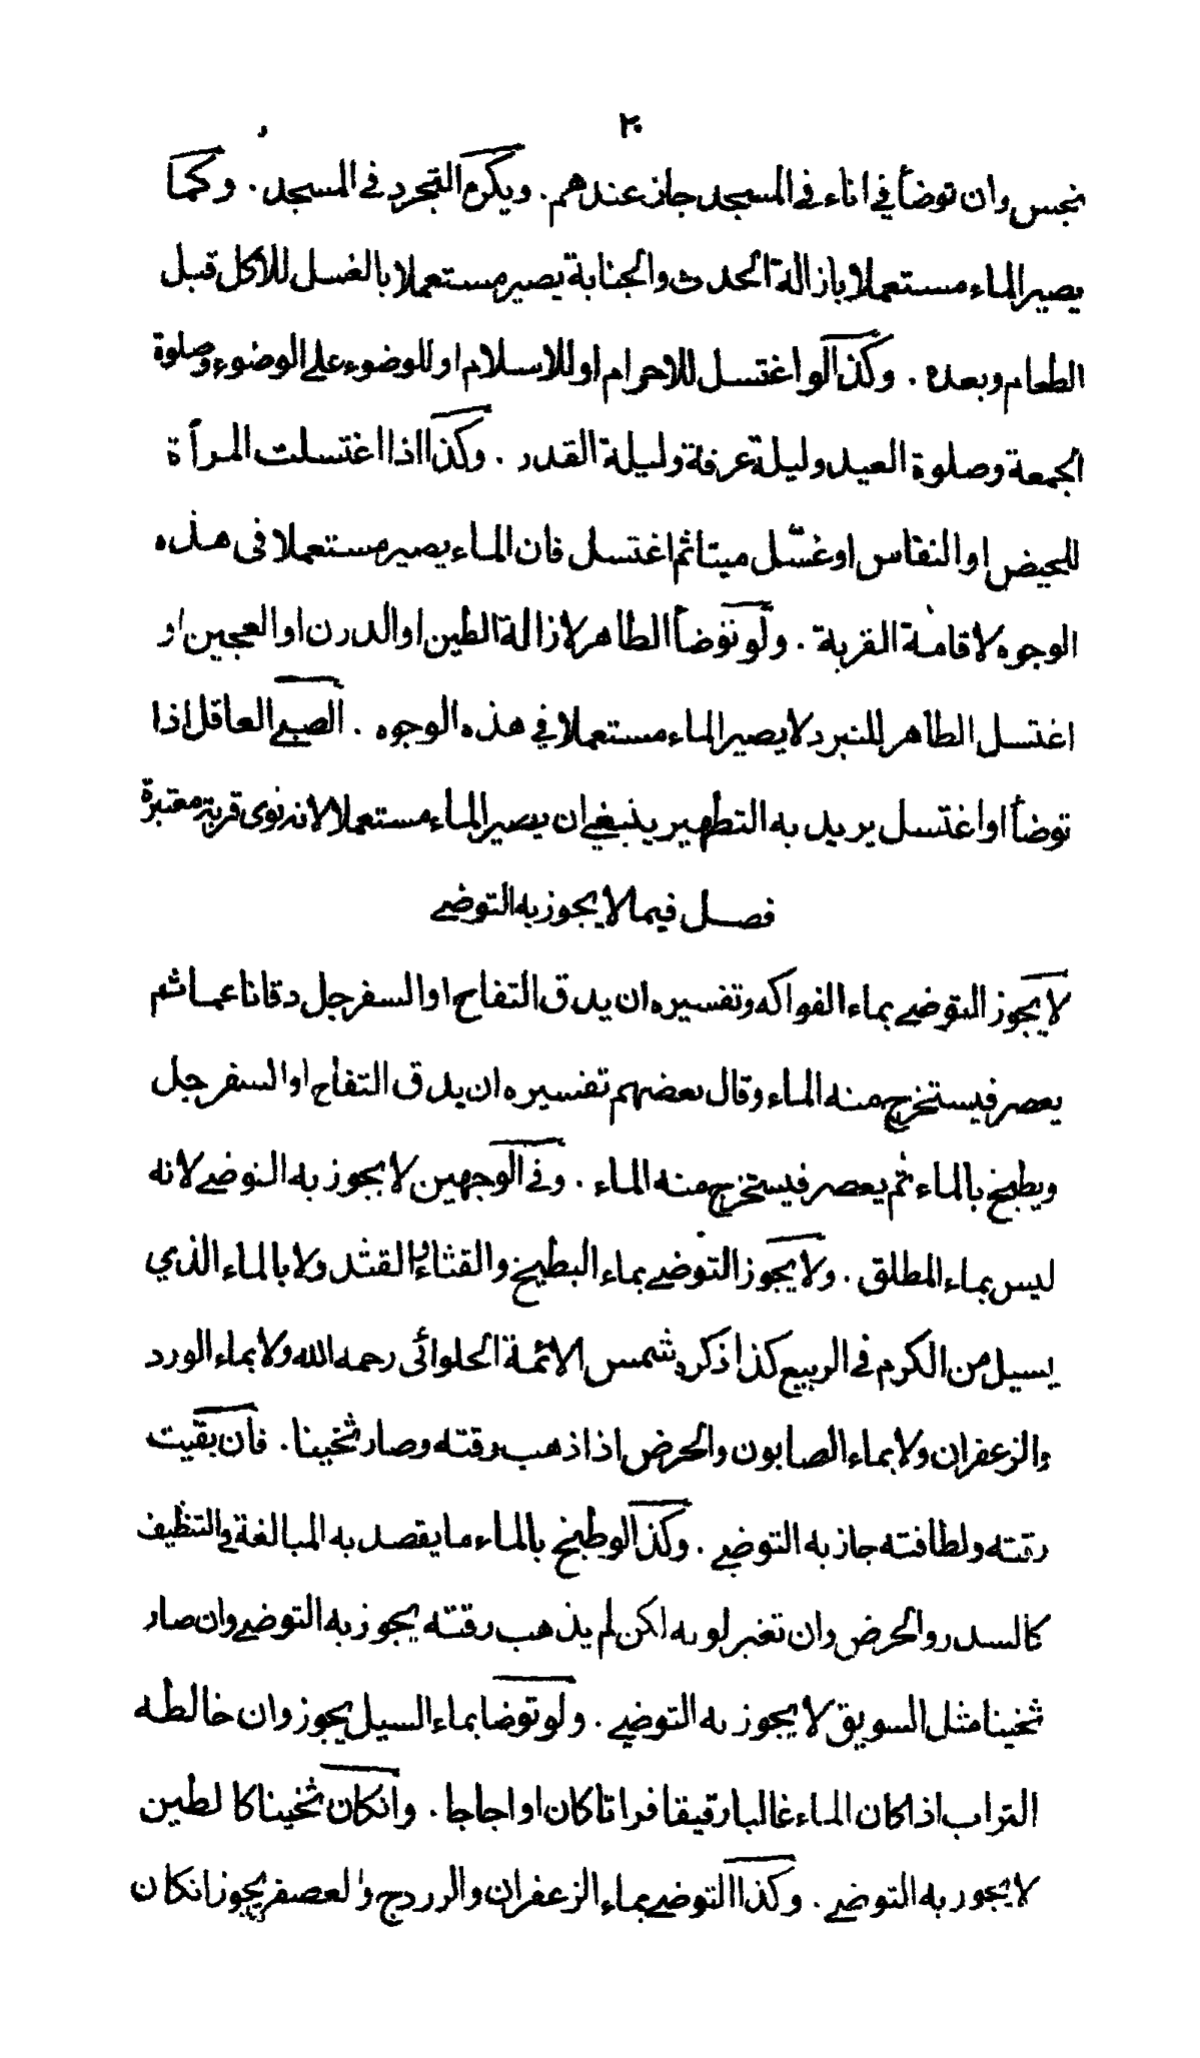 ٢٠
نجس وان توضأ في اناء في المسجد جاز عندهم . ويكره التجرد في المسجد . وكما
يصير الماء مستعملا بازالة الحدث والجنابة يصير مستعملا بالغسل للاكل قبل
الطعام وبعده . وكذا لو اغتسل للاحرام او للاسلام او للوضوء على الوضوء وصلوة
الجمعة وصلوة العيد وليلة عرفة وليلة القدر . وكذا اذا اغتسلت المرأة
للحيض او النفاس او غسّل ميتا ثم اغتسل فان الماء يصير مستعملا فى هذه
الوجوه لاقامة القربة . ولو توضأ الطاهر لازالة الطين او الدرن او العجين او
اغتسل الطاهر للتبرد لا يصير الماء مستعملا في هذه الوجوه . الصبي العاقل اذا
توضأ او اغتسل يريد به التطهير ينبغي ان يصير الماء مستعملا لانه نوى قربة معتبرة
فصل فيما لا يجوز به التوضي
لا يجوز التوضي بماء الفواكه وتفسيره ان يدق التفاح او السفرجل دقا ناعما ثم
يعصر فيستخرج منه الماء وقال بعضهم تفسيره ان يدق التفاح او السفرجل
ويطبخ بالماء ثم يعصر فيستخرج منه الماء . وفي الوجهين لا يجوز به التوضي لانه
ليس بماء المطلق . ولا يجوز التوضي بماء البطيخ والقثاء والقثد ولا بالماء الذي
يسيل من الكرم في الربيع كذا ذكره شمس الائمة الحلوائى رحمه الله ولا بماء الورد
والزعفران ولا بماء الصابون والحرض اذا ذهب رقته وصار ثخينا . فان بقيت
رقته ولطافته جاز به التوضي . وكذا لو طبخ بالماء ما يقصد به المبالغة في التنظيف
كالسدر والحرض وان تغير لونه لكن لم يذهب رقته يجوز به التوضي وان صار
ثخينا مثل السويق لا يجوز به التوضي . ولو توضا بماء السيل يجوز وان خالطه
التراب اذا كان الماء غالبا رقيقا فراتا كان او اجاجا . وانكان ثخينا كا لطين
لا يجوز به التوضي . وكذا التوضي بماء الزعفران والزردج والعصفر يجوز انكان